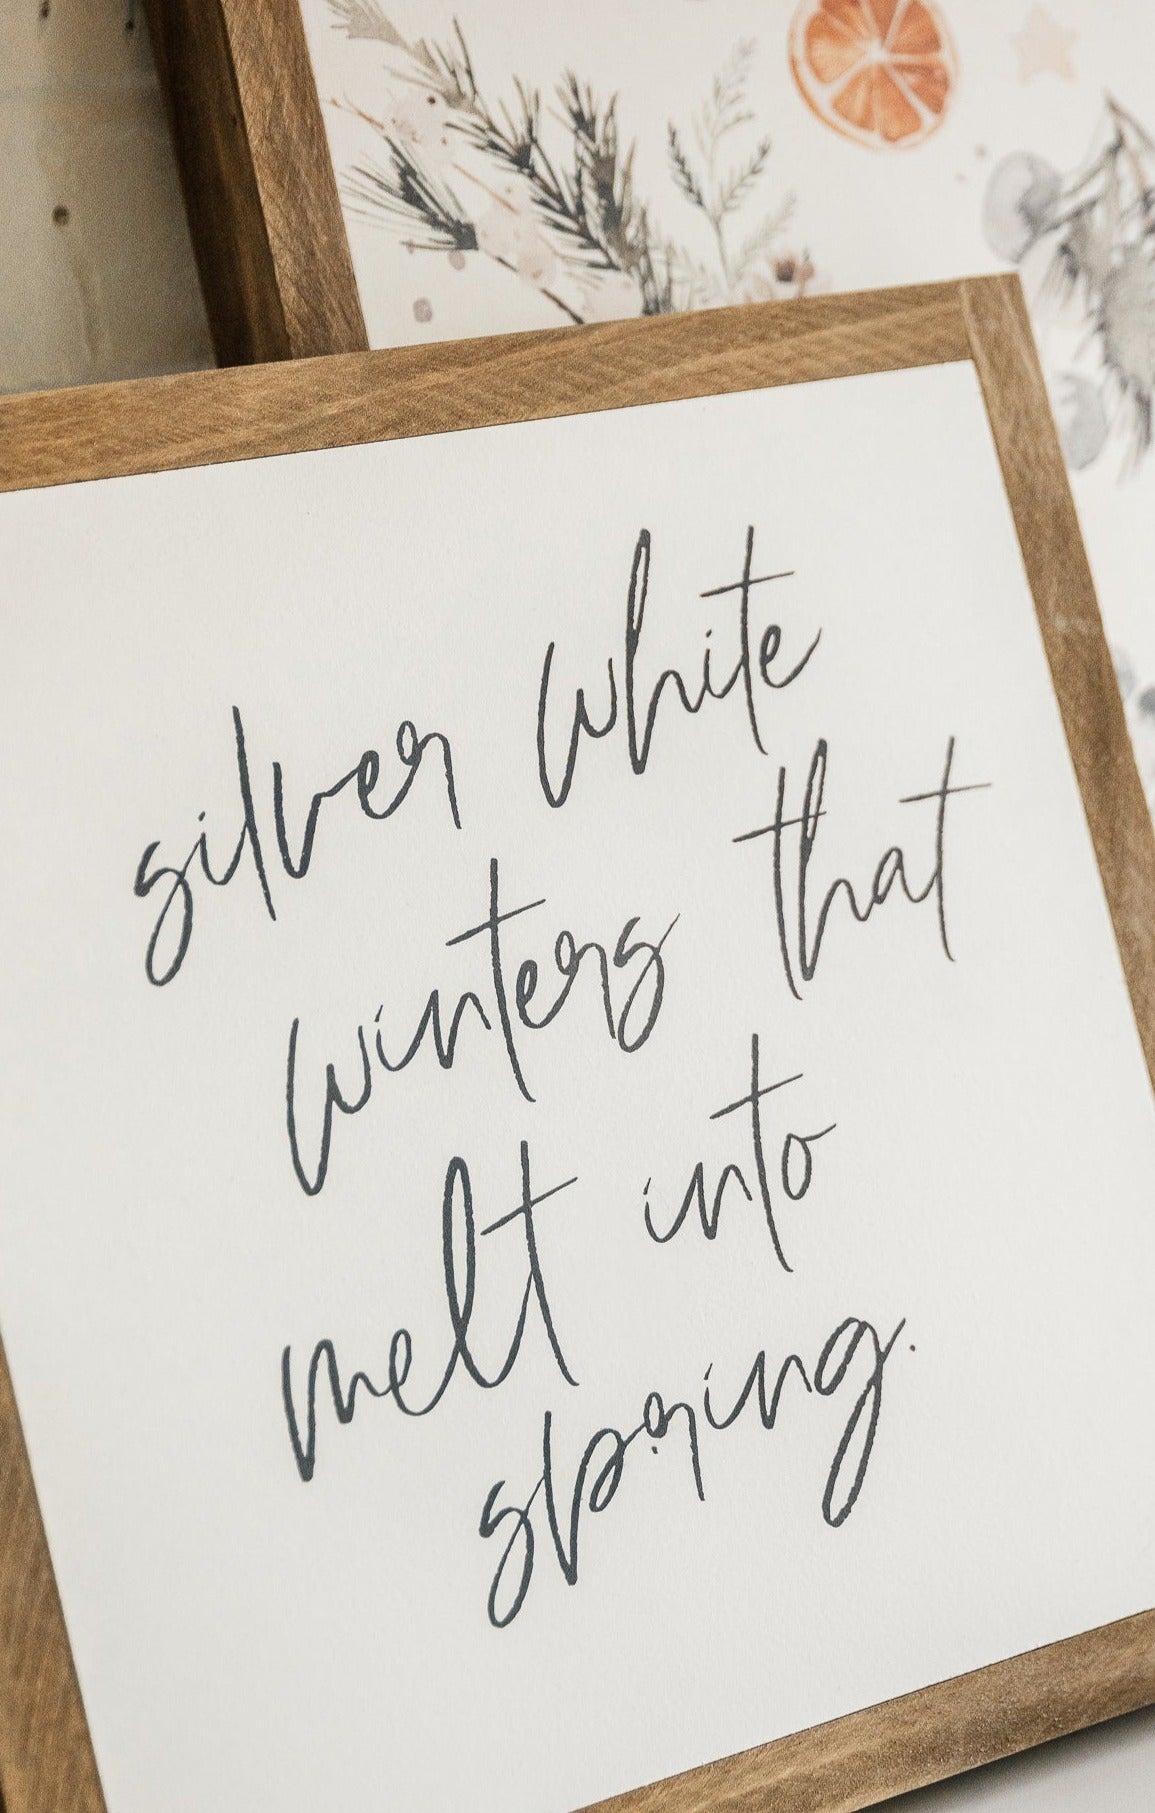 silver white
winters that
melt into
spring.